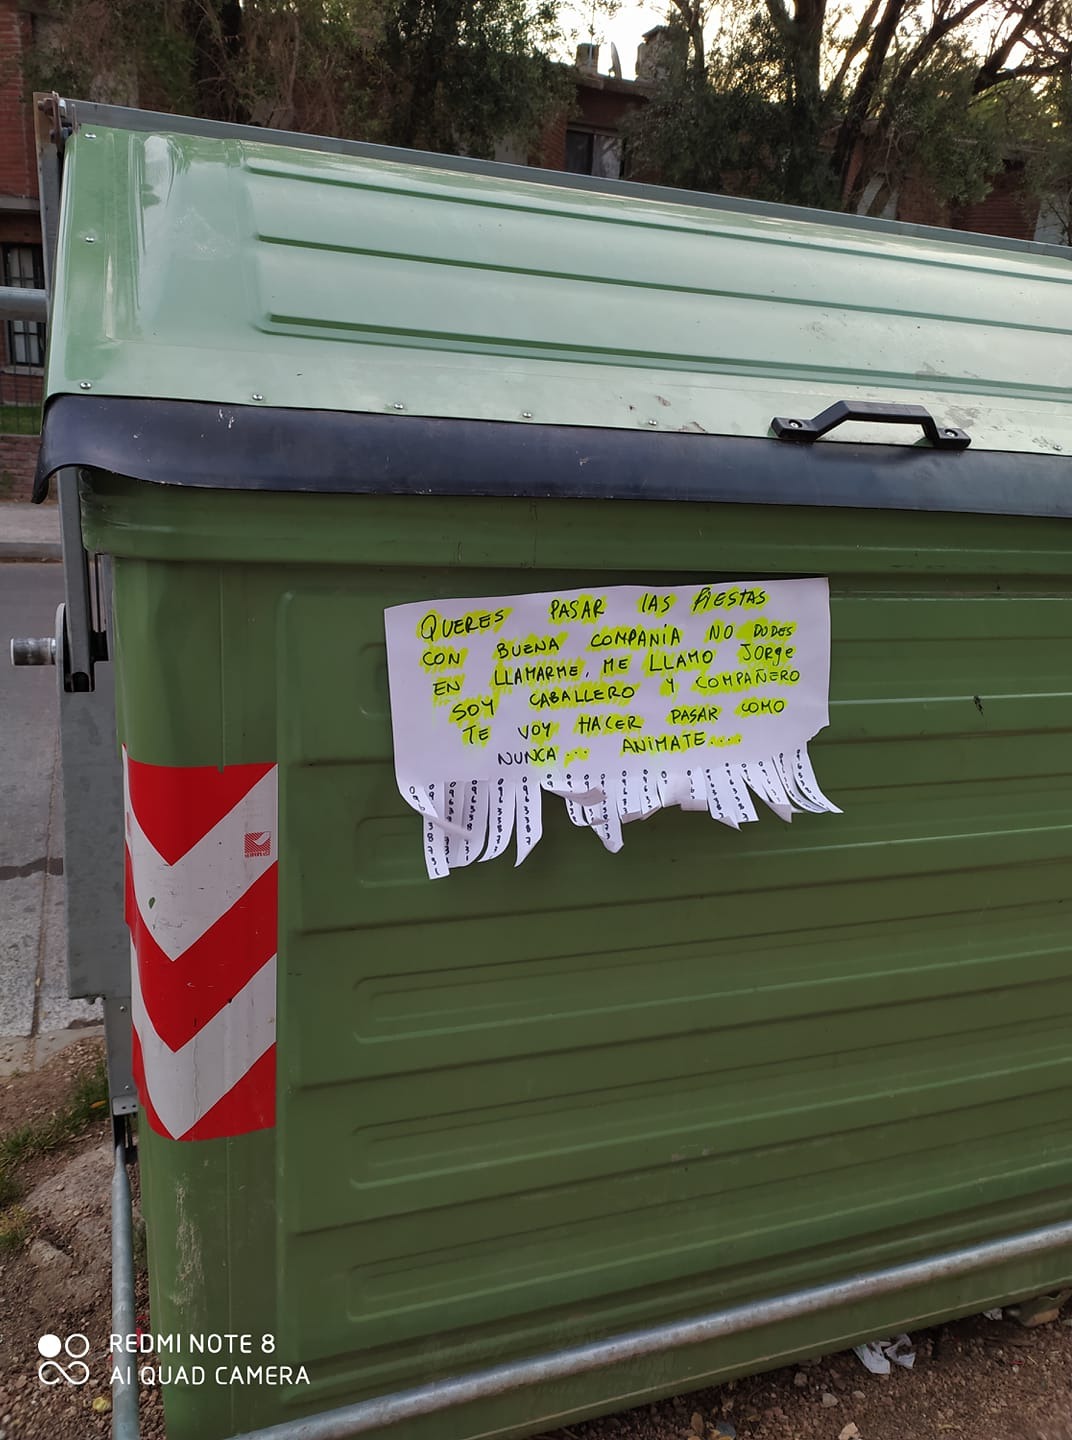 QUERES PASAR LAS FIESTAS
CON BUENA COMPANIA NO DUDES
EN LLAMARME, ME LLAMO JORGE
SOY CABALLERO Y COMPAÑERO
TE VOY HACER PASAR COMO
NUNCA... ANIMATE....
REDMI NOTE 8
AI QUAD CAMERA